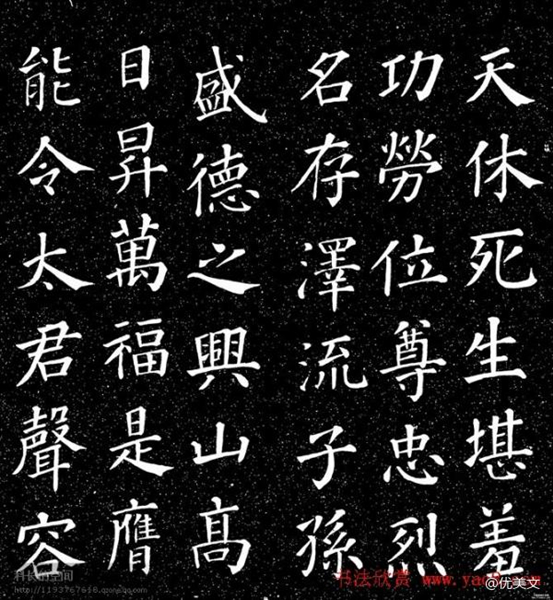 天休死生堪羞
功勞位尊忠烈
名存澤流子孫
盛德之興山高
日昇萬福是膺
能令太君聲容
书法欣赏 www.yac
@优美文